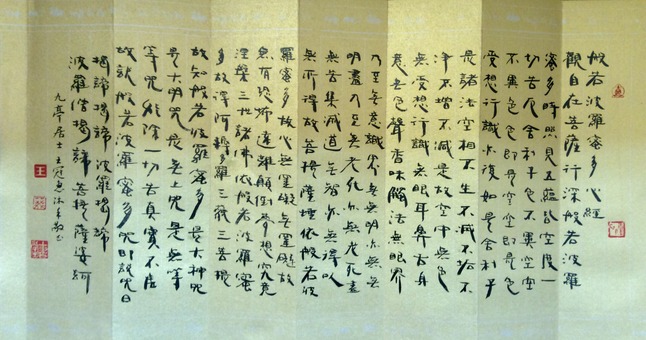 般若波羅蜜多心經
觀自在菩薩行深般若波羅
蜜多時照見五蘊皆空度一
切苦厄舍利子色不異空空
不異色色即是空空即是色
受想行識亦復如是舍利子
是諸法空相不生不滅不垢不
淨不增不減是故空中無色
無受想行識無眼耳鼻舌身
意无色聲香味觸法無眼界
乃至無意識界无無明亦無無
明盡乃至无老死亦無老死盡
無苦集滅道無智亦無得以
無所得故菩提薩埵依般若波
羅蜜多故心無罣礙無罣礙故
無有恐怖遠離顛倒夢想究竟
涅槃三世諸佛依般若波羅蜜
多故得阿耨多羅三藐三菩提
故知般若波羅蜜多是大神咒
是大明咒是無上咒是無等
等咒能除一切苦真實不虛
故說般若波羅蜜多咒即說咒曰
揭諦揭諦 波羅揭諦
波羅僧揭諦 菩提薩婆訶
九亭居士王冠惠沐手敬